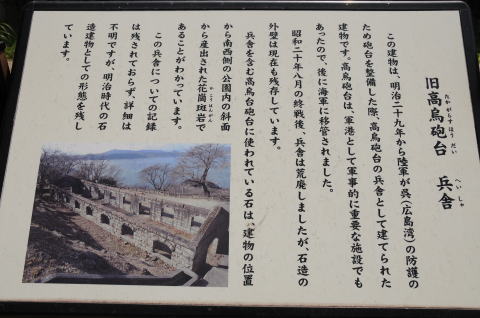 旧高烏砲台 兵舎
たかがらすほうだい へいしゃ
この建物は、明治二十九年から陸軍が呉(広島湾)の防護の
ため砲台を整備した際、高烏砲台の兵舎として建てられた
建物です。高烏砲台は、軍港として軍事的に重要な施設でも
あったので、後に海軍に移管されました。
昭和二十年八月の終戦後、兵舎は荒廃しましたが、石造の
外壁は現在も残存しています。
兵舎を含む高烏台砲台に使われている石は、建物の位置
から南西側の公園内の斜面
から産出された花崗斑岩で
かこうはんがん
あることがわかっています。
この兵舎についての記録
は残されておらず、詳細は
不明ですが、明治時代の石
造建物としての形態を残し
ています。